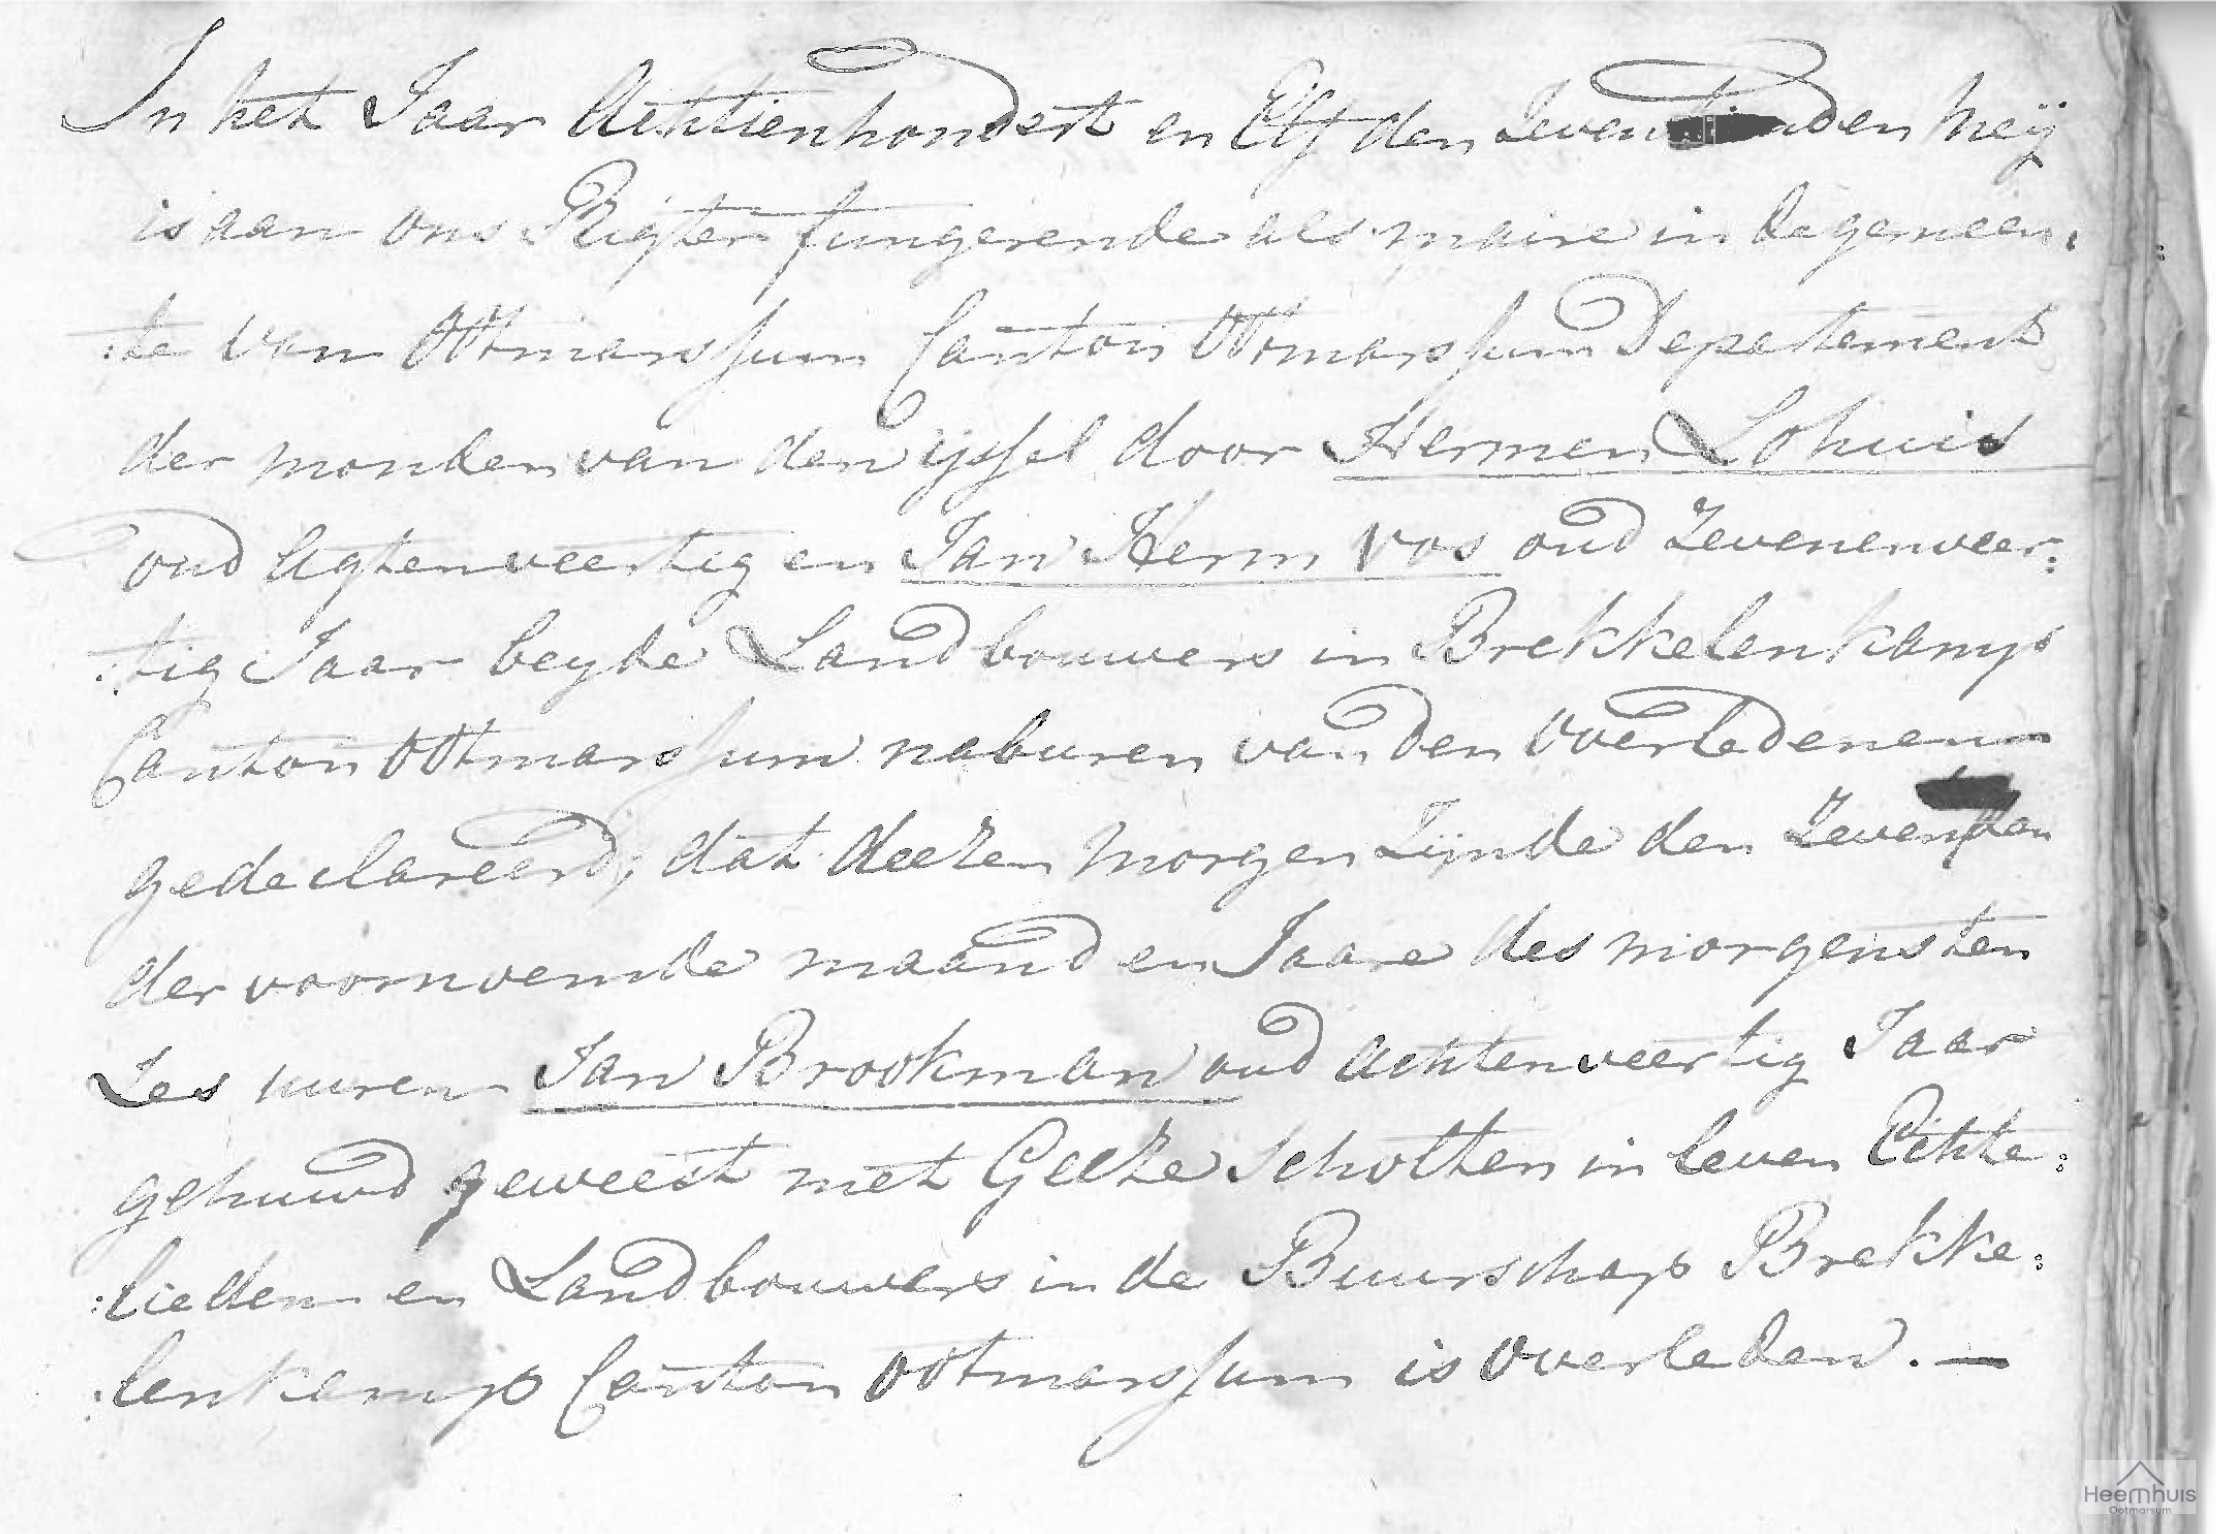 In het Jaar Achtienhondert en Elf den Zeventienden Meÿ
is aan ons Rigter fungerende als maire in de gemeen:
:te van Ootmarssum Canton Ootmarssum Departement
der monden van den ijssel door Hermen Lohuis
oud Agtenveertig en Jan Herm Vos oud Zevenenveer:
:tig Jaar beyde Landbouwers in Brekkelenkamp
Canton Ootmarssum naburen van den Overledenen
gedeclareerd, dat deezen morgen Zijnde den Zevenden
der voornoemde maand en Jaare des morgens ten
Zes uuren Jan Brookman oud Achtenveertig Jaar
gehuwd geweest met Geeze Scholten in leven Echte:
:lieden en Landbouwers in de Buurschap Brekke:
:lenkamp Canton Ootmarssum is Overleden. —
Heemhuis
Ootmarsum